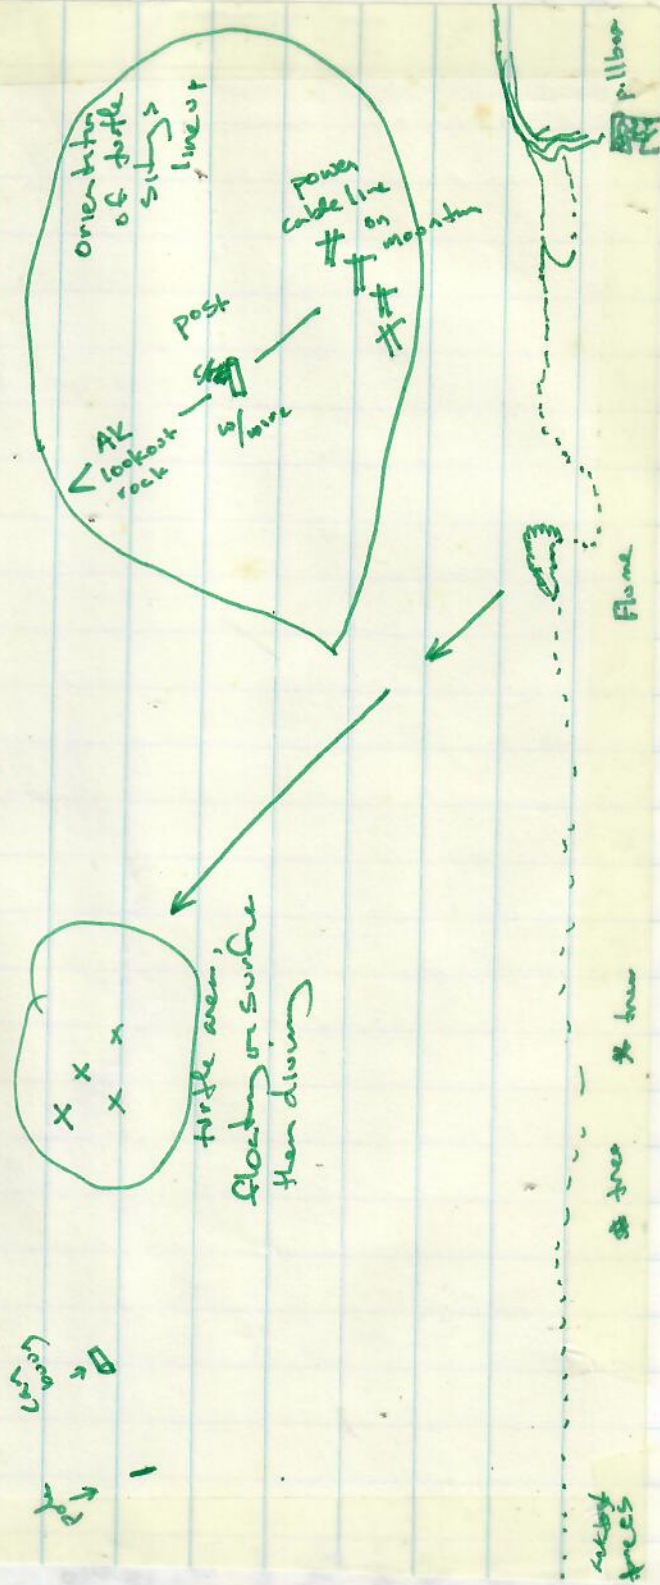 orientation
of turtle
sitings
line up
power
cable line
on
mountain
post
w/wire
AK
lookout
rock
pillbox
Flume
turtle area,
floating on surface
then diving
tree
tree
trees